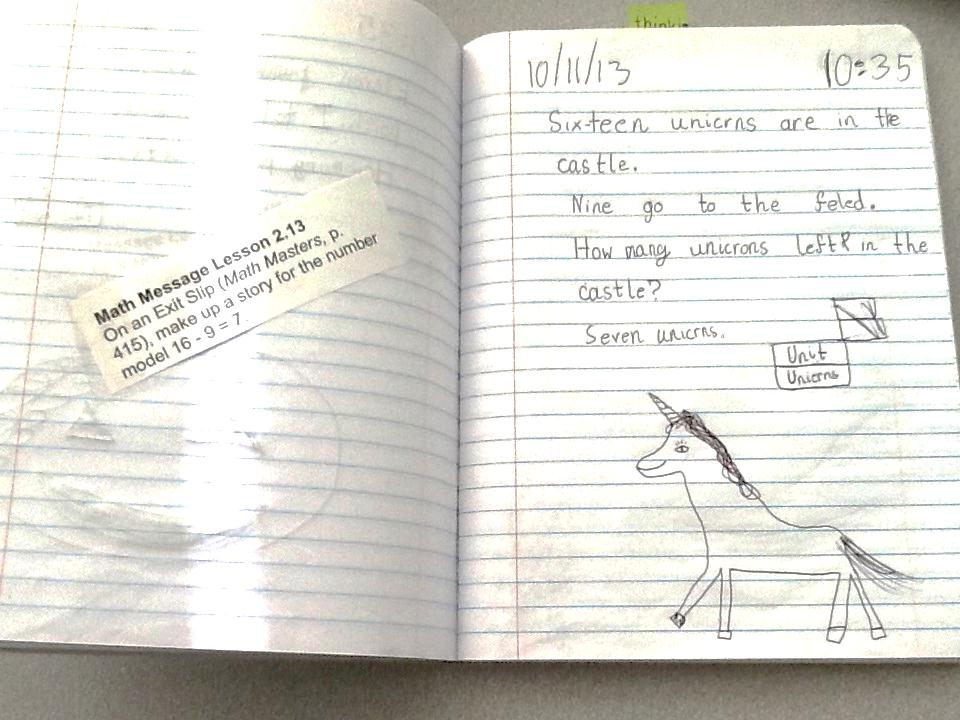 Math Message Lesson 2.13
On an Exit Slip (Math Masters, p.
415), make up a story for the number
model 16 - 9 = 7.
thinkin
10/11/13 10:35
Six-teen unicrns are in the
castle.
Nine go to the feled.
How many unicrons left in the
castle?
Seven unicrns.
Unit
Unicrns